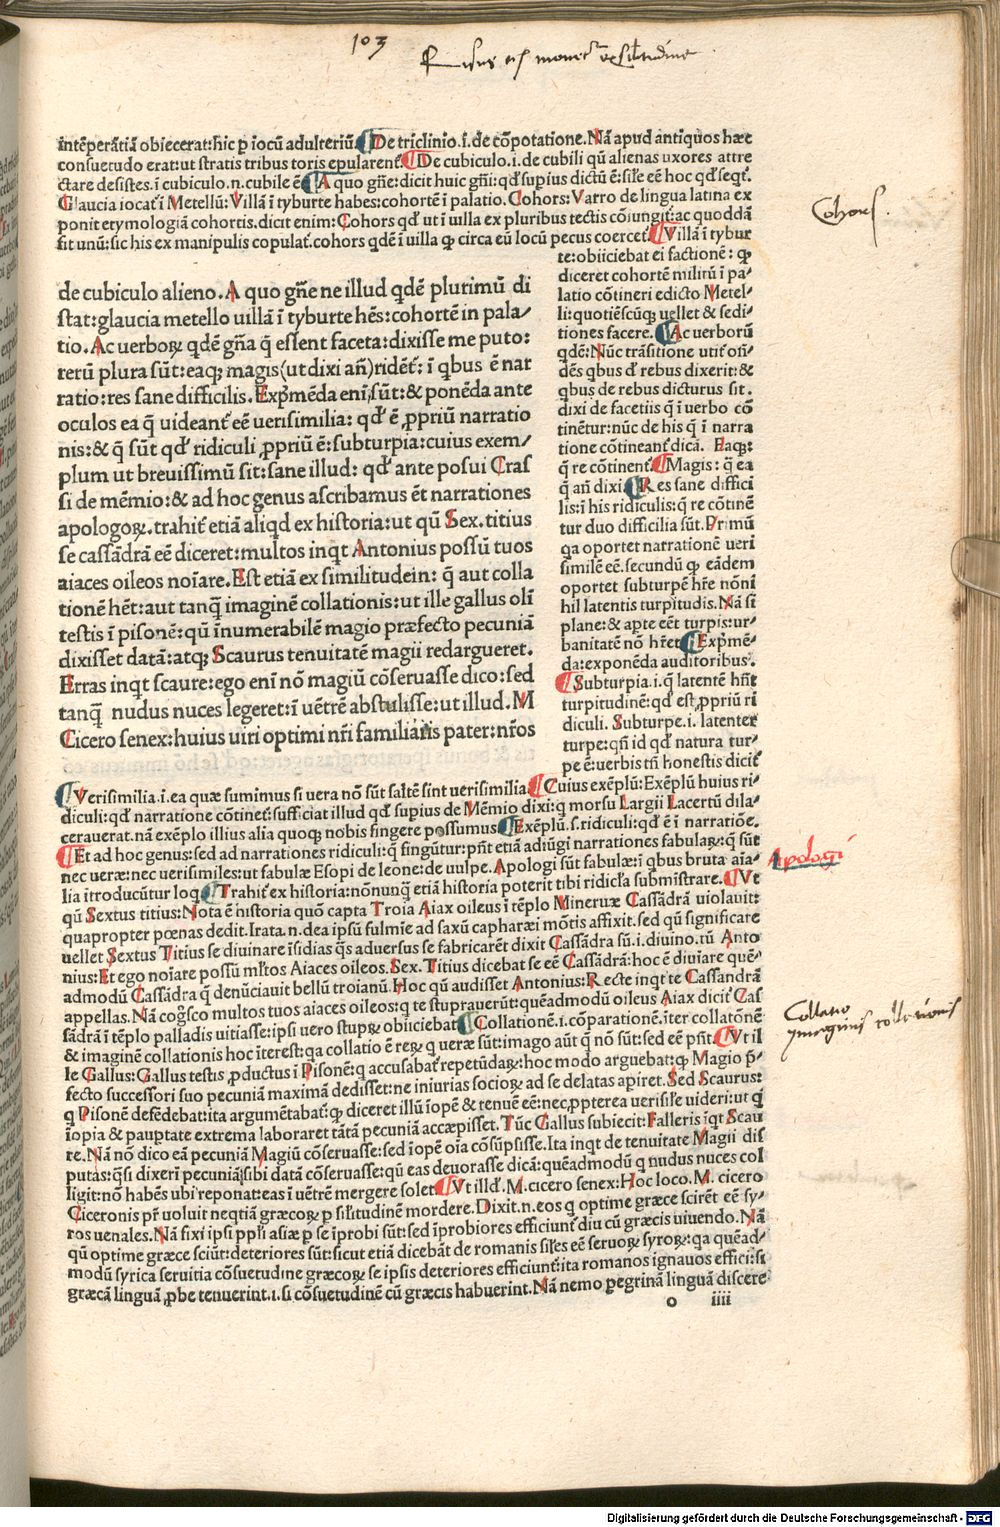 103
Risus etiam movetur ex similitudine
intēperātiā obiecerat:hic p iocū adulteriū. De triclinio.i.de cōpotatione.Nā apud antiquos hæc
consuetudo erat:ut stratis tribus toris epularent̄. De cubiculo.i.de cubili qū alienas uxores attre
ctare desistes.ī cubiculo.n.cubile ē A quo gn̄e:dicit huic gn̄i:qd̓ supius dictū ē:sile eē hoc qd̓ seqt̄.
Glaucia iocat̄ ī Metellū: Villā ī tyburte habes:cohortē ī palatio. Cohors: Varro de lingua latina ex
ponit etymologiā cohortis.dicit enim: Cohors qd̓ ut ī uilla ex pluribus tectis cōiungit̄:ac quoddā
fit unū:sic his ex manipulis copulat̄.cohors qdē ī uilla ꝙ circa eū locū pecus coercet̄. Villā ī tybur
Cohors.
te:obiiciebat ei factionē: ꝙ
diceret cohortē militū ī pa/
latio cōtineri edicto Metel/
li:quotiēscūqꝫ uellet & sedi/
tiones facere. Ac uerborū
qdē:Nūc trāsitione utit̄ on̄/
dēs qbus d̓ rebus dixerit:&
qbus de rebus dicturus sit.
dixi de facetiis q̄ ī uerbo cō
tinētur:nūc de his q̄ ī narra
tione cōtineant̄ dicā. Eaqꝫ:
q̄ re cōtinent̄. Magis: q̄ ea
q̄ an̄ dixi. Res sane diffici
lis:ī his ridiculis:q̄ re cōtinē
tur duo difficilia sūt.Primū
qa oportet narrationē ueri
similē eē.secundū ꝙ eādem
oportet subturpē hr̄e nōni
hil latentis turpitudis.Nā si
plane:& apte eēt turpis:ur/
banitatē nō hr̄et. Exp̄mē/
da:exponēda auditoribus.
Subturpia.i.q̄ latentē hn̄t
turpitudinē:qd̓ est ꝓpriū ri
diculi. Subturpe.i. latenter
turpe:qn̄ id qd̓ natura tur/
pe ē:uerbis tn̄ honestis dicit̄
de cubiculo alieno.A quo gn̄e ne illud qdē plurimū di
stat:glaucia metello uillā ī tyburte hēs:cohortē in pala/
tio.Ac uerboꝝ qdē gn̄a q̄ essent faceta:dixisse me puto:
rerū plura sūt:eaqꝫ magis(ut dixi an̄)ridēt̄: ī qbus ē nar
ratio:res sane difficilis.Exp̄mēda enī sūt:& ponēda ante
oculos ea q̄ uideant̄ eē uerisimilia: qd̓ ē ꝓpriū narratio
nis:& q̄ sūt qd̓ ridiculi ꝓpriū ē:subturpia:cuius exem/
plum ut breuissimū sit:sane illud: qd̓ ante posui Cras
si de mēmio:& ad hoc genus ascribamus ēt narrationes
apologoꝝ.trahit̄ etiā aliqd ex historia:ut qū Sex.titius
se cassādrā eē diceret:multos inqt Antonius possū tuos
aiaces oileos noīare.Est etiā ex similitudein: q̄ aut colla
tionē hēt:aut tanq̄ imaginē collationis:ut ille gallus olī
testis ī pisonē:qū īnumerabilē magio præfecto pecuniā
dixisset datā:atqꝫ Scaurus tenuitatē magii redargueret.
Erras inqt scaure:ego enī nō magiū cōseruasse dico:sed
tanq̄ nudus nuces legeret:ī uētrē abstulisse:ut illud.M
Cicero senex:huius uiri optimi nr̄i familiaris pater:nr̄os
Verisimilia.i.ea quæ sumimus si uera nō sūt saltē sint uerisimilia. Cuius exēplū:Exēplū huius ri/
diculi:qd̓ narratione cōtinet̄:sufficiat illud qd̓ supius de Mēmio dixi:q morsu Largii Lacertū dila/
cerauerat.nā exēplo illius alia quoqꝫ nobis fingere possumus. Exēplū.s.ridiculi:qd̓ ē ī narratiōe.
Et ad hoc genus:sed ad narrationes ridiculi:q̄ fingūtur:pn̄t etiā adiūgi narrationes fabulaꝝ:q̄ sūt
nec ueræ:nec uerisimiles:ut fabulæ Esopi de leone:de uulpe.Apologi sūt fabulæ:ī qbus bruta aīa/
Apologi
lia ītroducūtur loq. Trahit̄ ex historia:nōnunq̄ etiā historia poterit tibi ridicl̓a submīstrare. Vt
qū Sextus titius:Nota ē historia quō capta Troia Aiax oileus ī tēplo Mineruæ Cassādrā uiolauit:
quapropter pœnas dedit.Irata.n.dea ipsū fulmīe ad saxū capharæi mōtis affixit.sed qū significare
uellet Sextus Titius se diuinare īsidias q̄s aduersus se fabricarēt dixit Cassādra sū.i.diuino.tū Anto
nius:Et ego noīare possū ml̓tos Aiaces oileos.Sex.Titius dicebat se eē Cassādrā:hoc ē diuīare quē/
admodū Cassādra q̄ denūciauit bellū troianū.Hoc qū audisset Antonius:Recte inqt te Cassandrā
appellas.Nā cogn̄sco multos tuos aiaces oileos:q te stuprauerūt:quēadmodū oileus Aiax dicit̄ Cas
sādrā ī tēplo palladis uitiasse:ipsi uero stupꝝ obiiciebat. Collationē.i.cōparationē.iter collatōnē
Collatio
Imaginis collationis
& imaginē collationis hoc īterest:qa collatio ē reꝝ q ueræ sūt:imago aūt q̄ nō sūt:sed eē pn̄t. Vt il
le Gallus:Gallus testis ꝓductus ī Pisonē:q accusabat̄ repetūdaꝝ:hoc modo arguebat:ꝙ Magio p̄/
fecto successori suo pecuniā maximā dedisset:ne iniurias socioꝝ ad se delatas apiret.Sed Scaurus:
q Pisonē defēdebat:ita argumētabat̄:ꝙ diceret illū īopē & tenuē eē:nec ꝓpterea uerisil̓e uideri:ut q
īopia & paup̄tate extrema laboraret tātā pecuniā accæpisset.Tūc Gallus subiecit:Falleris īqt Scau
re.Nā nō dico eā pecuniā Magiū cōseruasse:sed īopē oīa cōsūpsisse.Ita inqt de tenuitate Magii dis
putas:q̄si dixerī pecuniā sibi datā cōseruasse:qū eas deuorasse dicā:quēadmodū q nudus nuces col
ligit:nō habēs ubi reponat:eas ī uētrē mergere solet. Vt illd̓.M.cicero senex:Hoc loco.M.cicero
Ciceronis pr̄ uoluit neqtiā græcoꝝ p sil̓itudinē mordere.Dixit.n.eos q optime græce scirēt eē sy/
ros uenales.Nā sixi ipsi pp̓li asiæ p se īprobi sūt:sed īprobiores efficiunt̄ diu cū græcis uiuendo.Nā
qū optime græce sciūt:deteriores sūt:sicut etiā dicebāt de romanis sil̓es eē seruoꝝ syroꝝ:qa quēad/
modū syrica seruitia cōsuetudine græcoꝝ se ipsis deteriores efficiunt̄:ita romanos ignauos effici:si
græcā linguā ꝓbe tenuerint.i.si cōsuetudinē cū græcis habuerint.Nā nemo pegrinā linguā discere
o iiii
Digitalisierung gefördert durch die Deutsche Forschungsgemeinschaft - DFG